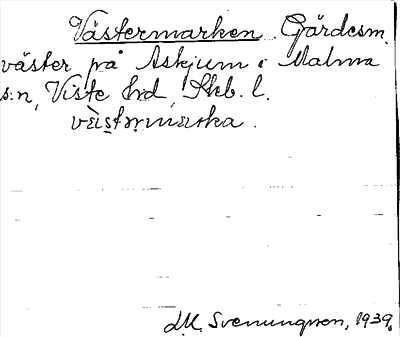 Västermarken. Gärdesm.
väster på Askjum i Malma
s:n, Viste hrd, Skb. l.
væstərmarka.
J.M. Svenungsson, 1939.